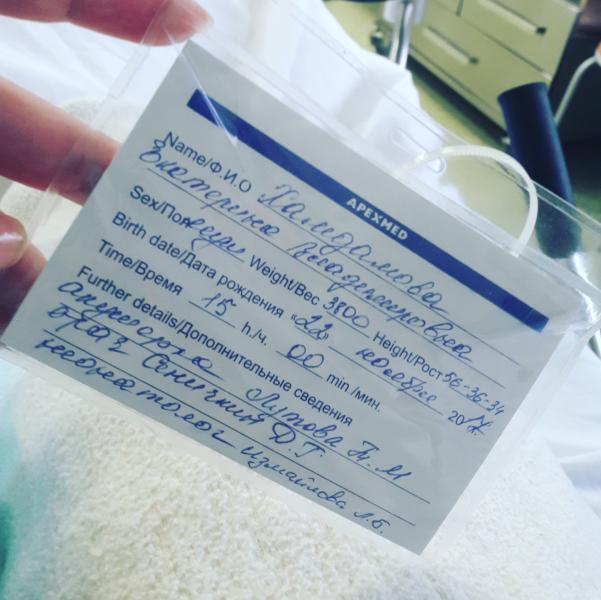 APEXMED
Name/Ф.И.О Хамдамова
Екатерина Владимировна
Sex/Пол жен Weight/Вес 3800 Height/Рост 56-36-34
Birth date/Дата рождения «22» ноября 2017 г.
Time/Время 15 h/ч. 00 min/мин.
Further details/Дополнительные сведения
акушерка Лутова Т.М
врач Синичкин Д.Г
неонатолог Измайлова Л.Б.